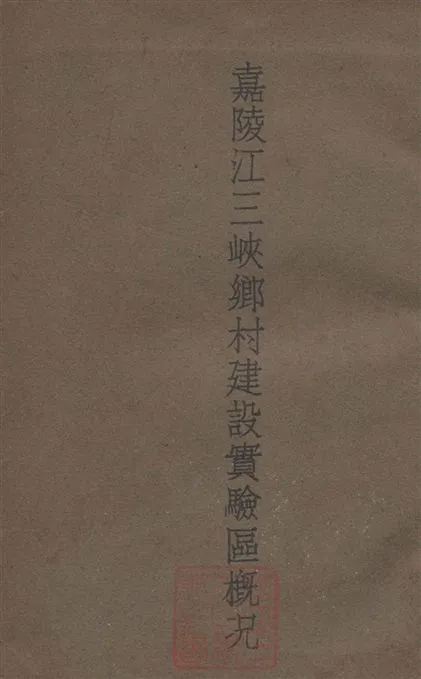 嘉陵江三峽鄉村建設實驗區概况